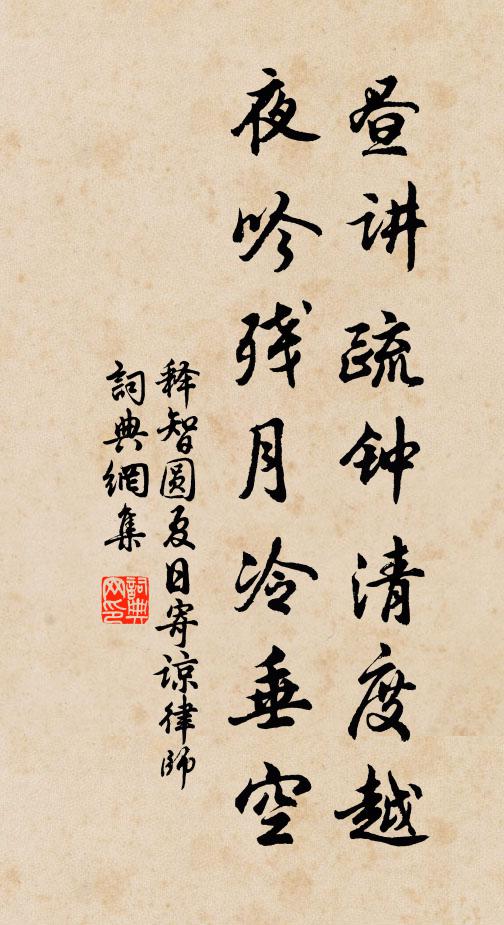 昼讲疏钟清度越
夜吟残月冷垂空
释智圆夏日寄谅律师
詞典網集
詞典網印